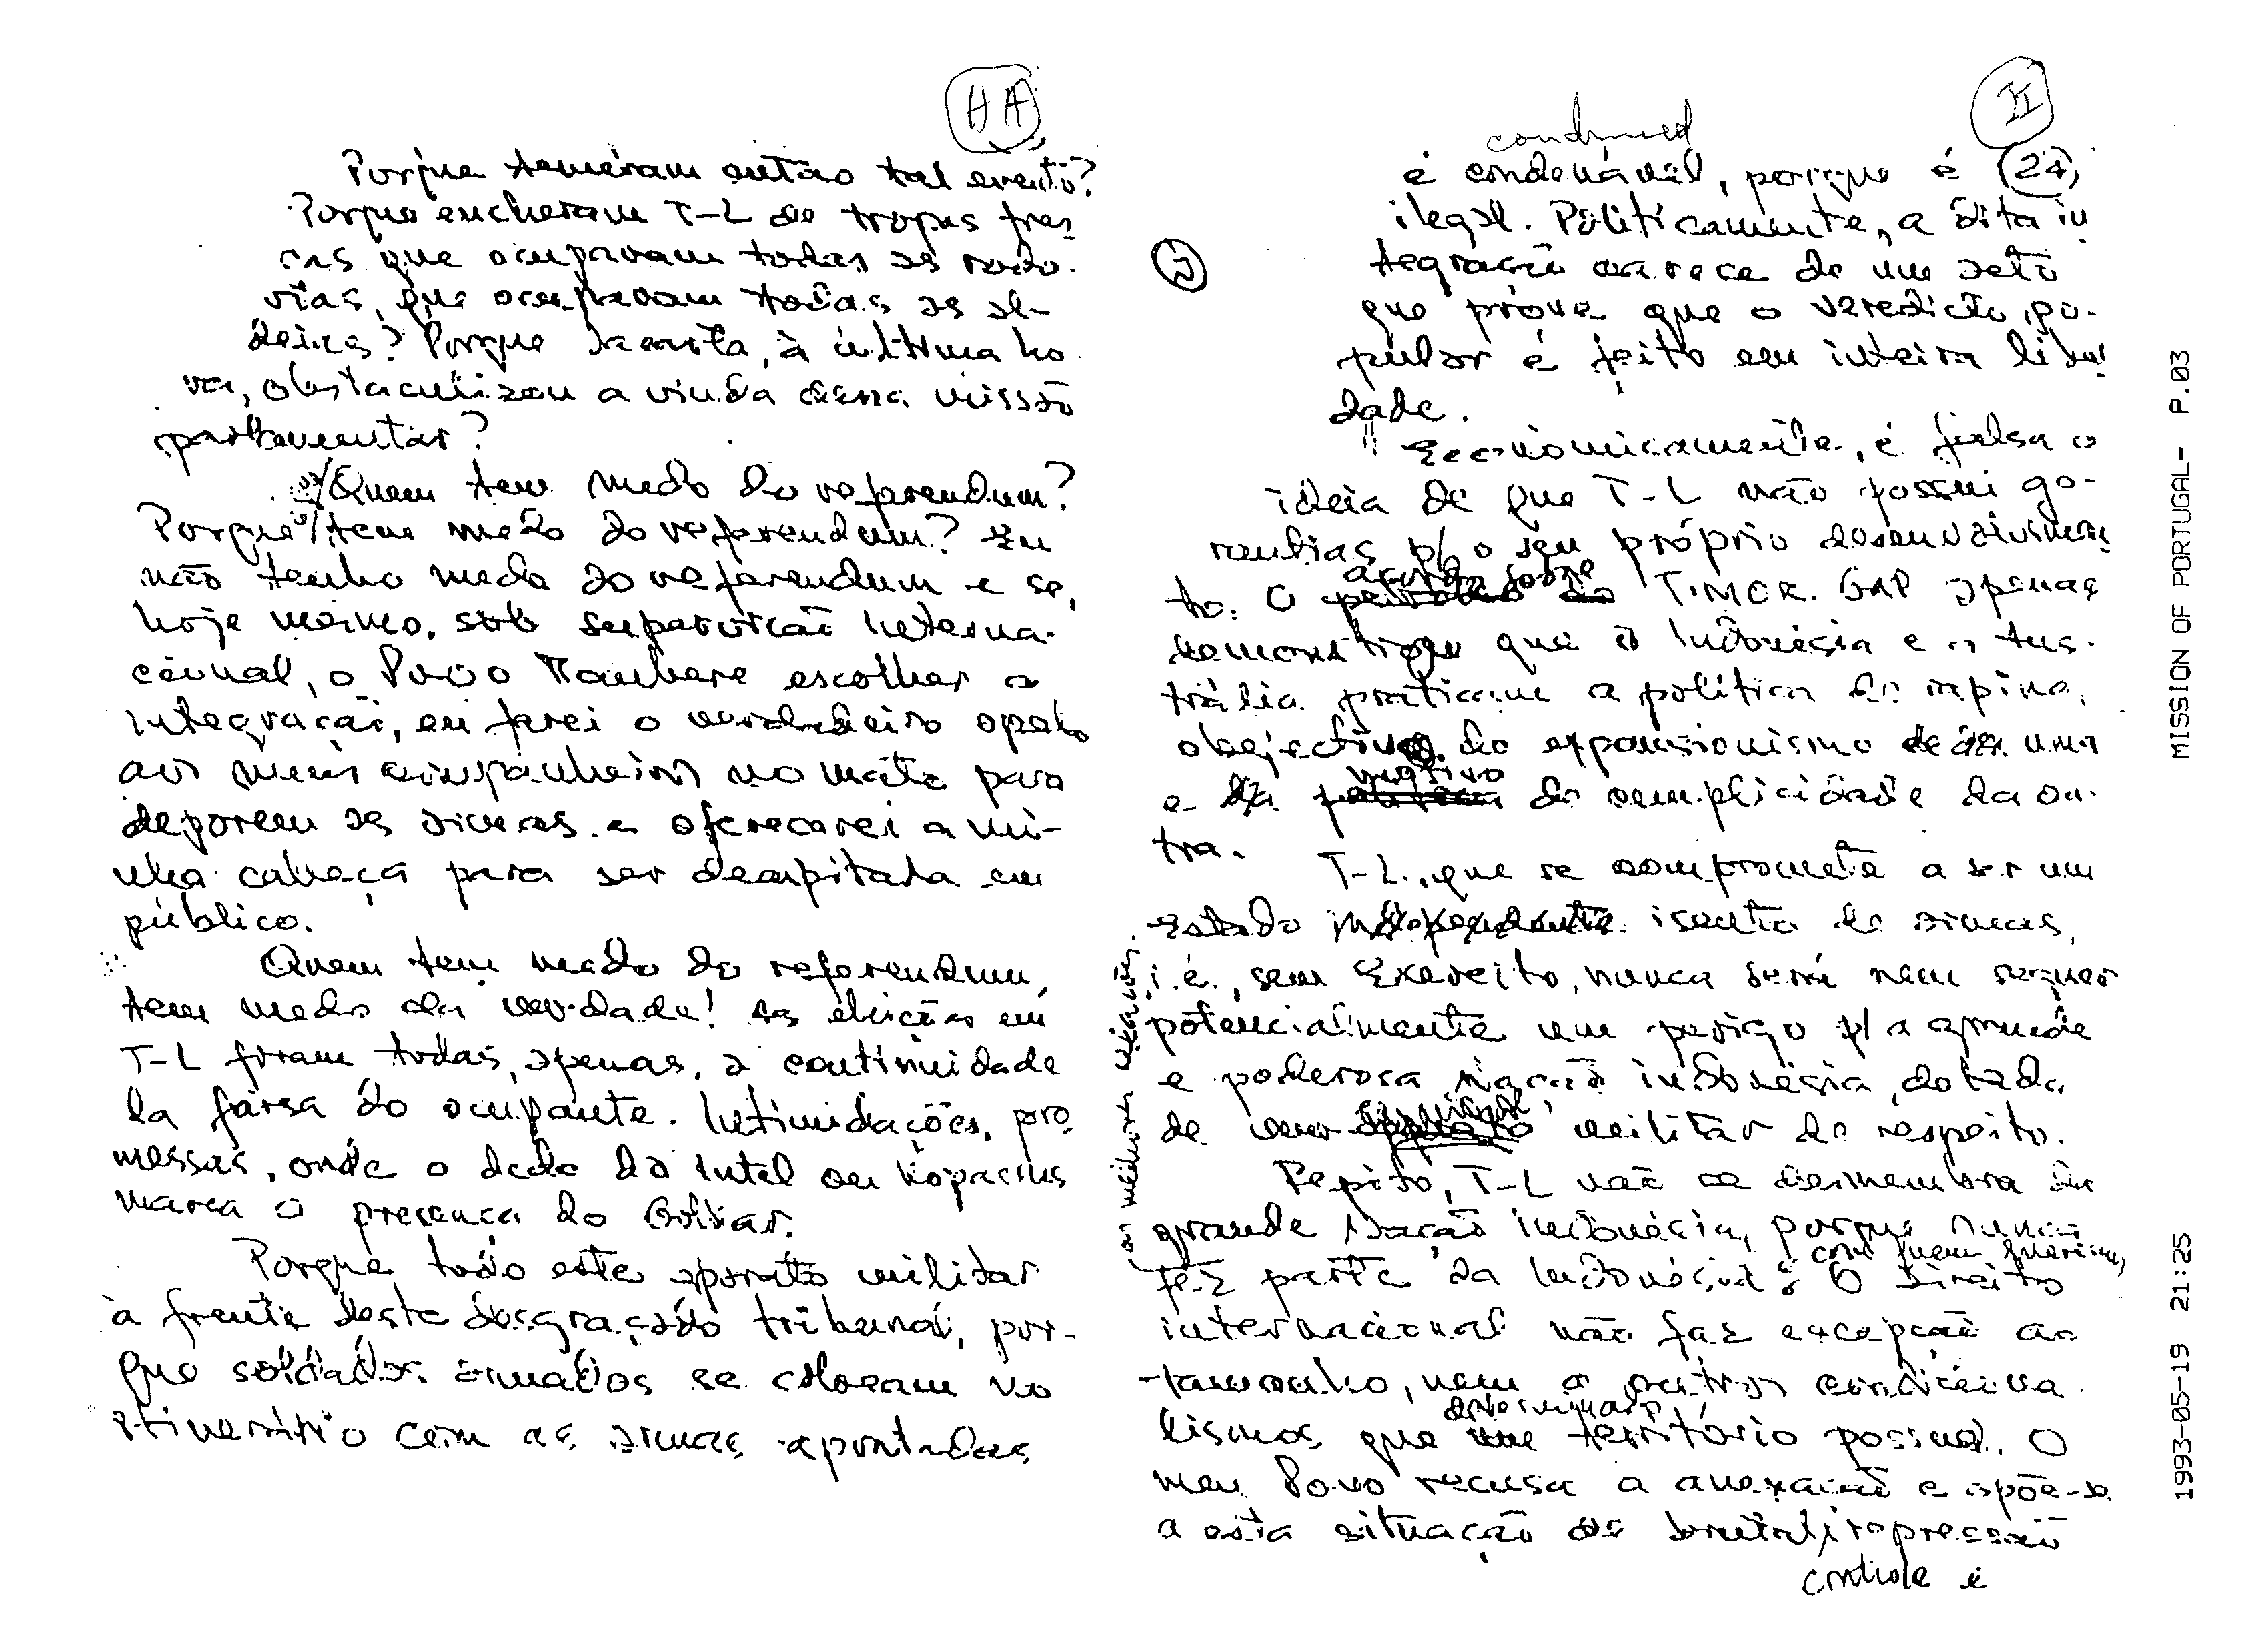 HA
Porque temeram então tal evento?
Porque encheram T-L de tropas fres-
cas que ocupavam todas as rodo-
vias, que ocupavam todas as al-
deias? Porque Jacarta, à última ho
ra, obstaculizou a vinda dessa missão
parlamentar?
Quem tem medo do referendum?
Porque tem medo do referendum? Eu
não tenho medo do referendum e se,
hoje mesmo, sob supervisão interna-
cional, o Povo Maubere escolher a
integração, eu farei o verdadeiro apelo
aos meus companheiros no mato para
deporem as armas e oferecerei a mi-
nha cabeça para ser decapitada em
público.
Quem tem medo do referendum,
tem medo da verdade! As eleições em
T-L foram todas, apenas, a continuidade
da farsa do ocupante. Intimidações, pro
messas, onde o dedo do Intel ou Kopassus
marca a presença do Golkar.
Porque todo este aparato militar
à frente deste desgraçado tribunal, por-
que soldados armados se colocam no
itinerário com as armas apontadas
II
é condenável, porque é (24)
ilegal. Politicamente, a dita in
tegração carece de um acto
que prove que o veredicto po-
pular é feito em inteira liber
dade.
Economicamente, é falsa a
ideia de que T-L não possui ga-
rantias p/ o seu próprio desenvolvimen
to. O acordo sobre TIMOR GAP apenas
demonstrou que a Indonésia e a Aus-
trália praticam a política de rapina,
objectivo do expansionismo de uma
e motivo de cumplicidade da ou-
tra.
T-L, que se compromete a ser um
Estado isento de armas,
i.é., sem Exército, nunca será nem sequer
potencialmente um perigo p/ a grande
e poderosa nação indonésia, dotada
de uma militar de respeito.
Repito, T-L não se desmembra da
grande Nação indonésia, porque nunca
fez parte da Indonésia. O Direito
internacional não faz excepção ao
tamanho, nem a outros condiciona
lismos que determinado território possua. O
meu Povo recusa a anexação e opõe-se
a esta situação de brutal repressão
controle e
MISSION OF PORTUGAL- P.03
1993-05-19 21:25